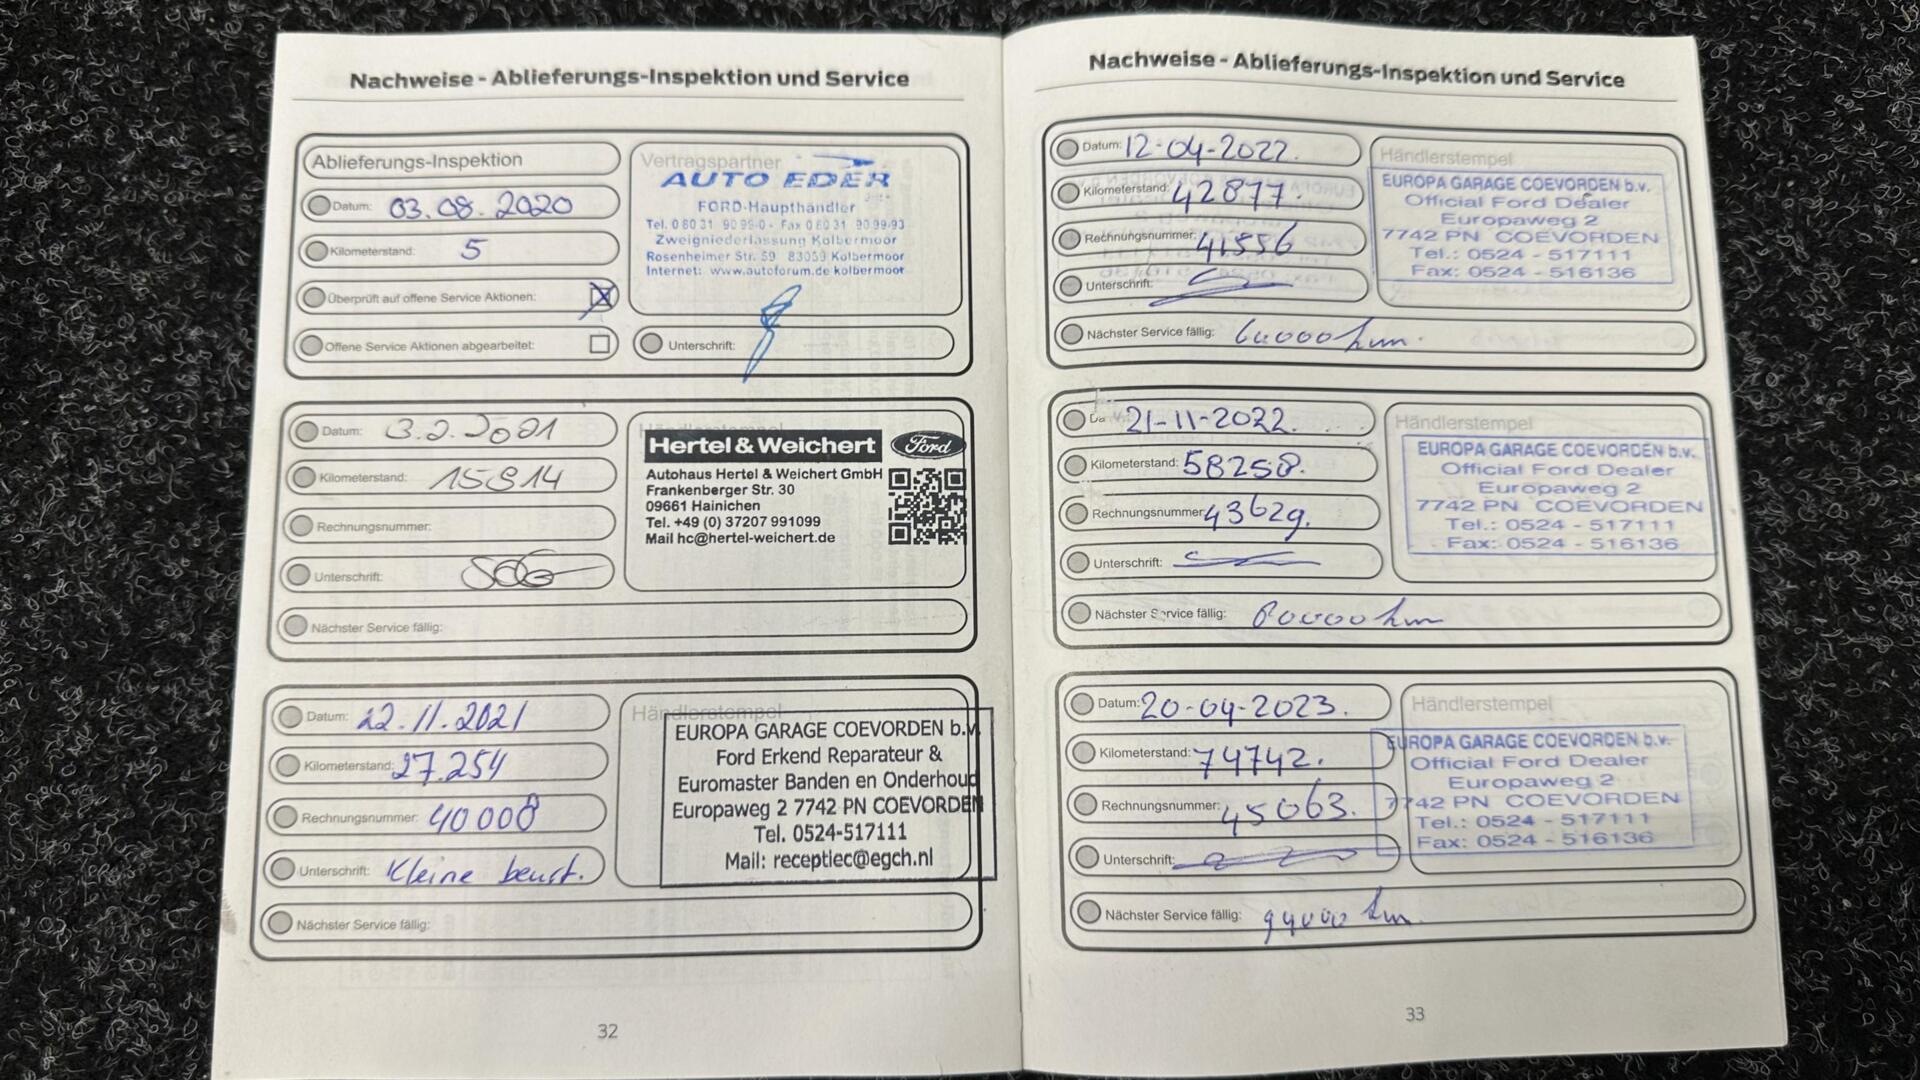 Nachweise - Ablieferungs-Inspektion und Service
Ablieferungs-Inspektion
Datum: 03.08.2020
Kilometerstand: 5
Überprüft auf offene Service Aktionen: X
Offene Service Aktionen abgearbeitet:
Vertragspartner
AUTO EDER
FORD-Haupthändler
Tel. 0 80 31 90 99-0 - Fax 0 80 31 90 99-93
Zweigniederlassung Kolbermoor
Rosenheimer Str. 59 83059 Kolbermoor
Internet: www.autoforum.de kolbermoor
Unterschrift:
Datum: 3.2.2021
Kilometerstand: 15814
Rechnungsnummer:
Unterschrift:
Nächster Service fällig:
Händlerstempel
Hertel & Weichert Ford
Autohaus Hertel & Weichert GmbH
Frankenberger Str. 30
09661 Hainichen
Tel. +49 (0) 37207 991099
Mail hc@hertel-weichert.de
Datum: 22.11.2021
Kilometerstand: 27.254
Rechnungsnummer: 40008
Unterschrift: Kleine beurt.
Nächster Service fällig:
Händlerstempel
EUROPA GARAGE COEVORDEN b.v.
Ford Erkend Reparateur &
Euromaster Banden en Onderhoud
Europaweg 2 7742 PN COEVORDEN
Tel. 0524-517111
Mail: receptiec@egch.nl
32
Nachweise - Ablieferungs-Inspektion und Service
Datum: 12-04-2022.
Kilometerstand: 42877.
Rechnungsnummer: 41556
Unterschrift:
Nächster Service fällig: 60000 km.
Händlerstempel
EUROPA GARAGE COEVORDEN b.v.
Official Ford Dealer
Europaweg 2
7742 PN COEVORDEN
Tel.: 0524 - 517111
Fax: 0524 - 516136
Da 21-11-2022.
Kilometerstand: 58258.
Rechnungsnummer: 43629.
Unterschrift:
Nächster Service fällig: 80000 km
Händlerstempel
EUROPA GARAGE COEVORDEN b.v.
Official Ford Dealer
Europaweg 2
7742 PN COEVORDEN
Tel.: 0524 - 517111
Fax: 0524 - 516136
Datum: 20-04-2023.
Kilometerstand: 74742.
Rechnungsnummer: 45063.
Unterschrift:
Nächster Service fällig: 94000 km.
Händlerstempel
EUROPA GARAGE COEVORDEN b.v.
Official Ford Dealer
Europaweg 2
7742 PN COEVORDEN
Tel.: 0524 - 517111
Fax: 0524 - 516136
33